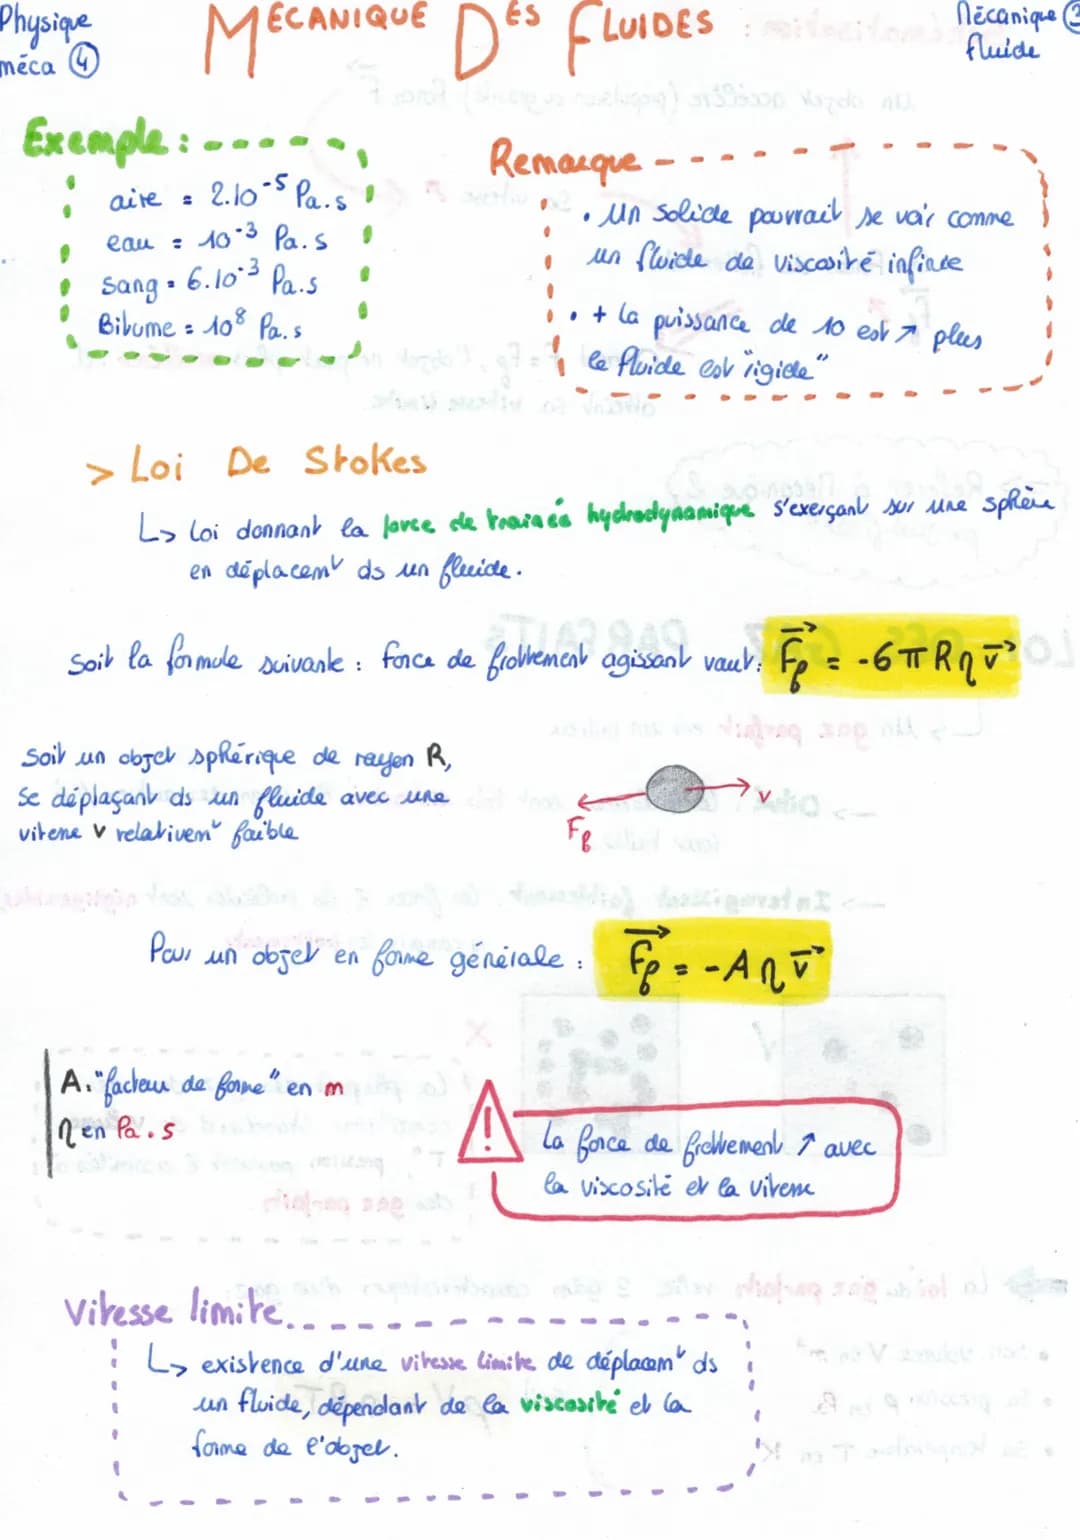 Physique
méca ④
MECANIQUE DES FLUIDES
Mécanique ③
fluide
Exemple :
aire = 2.10⁻⁵ Pa.s
eau = 10⁻³ Pa.s
Sang = 6.10⁻³ Pa.s
Bitume = 10⁸ Pa.s
Remarque
• Un solide pourrait se voir comme
un fluide de viscosité infinie
• + la puissance de 10 est ↗ plus
le fluide est "rigide"
> Loi De Stokes
↳ Loi donnant la force de trainée hydrodynamique s'exerçant sur une sphère
en déplacemᵗ ds un fluide.
Soit la formule suivante : force de frottement agissant vaut : F⃗f = -6πRηv⃗
Soit un objet sphérique de rayon R,
Se déplaçant ds un fluide avec une
vitesse v relativemᵗ faible
v
Ff
Pour un objet en forme générale : F⃗f = -Aηv⃗
A : "facteur de forme" en m
η en Pa.s
!
La force de frottement ↗ avec
la viscosité et la vitesse
Vitesse limite
↳ existence d'une vitesse limite de déplacemᵗ ds
un fluide, dépendant de la viscosité et la
forme de l'objet.